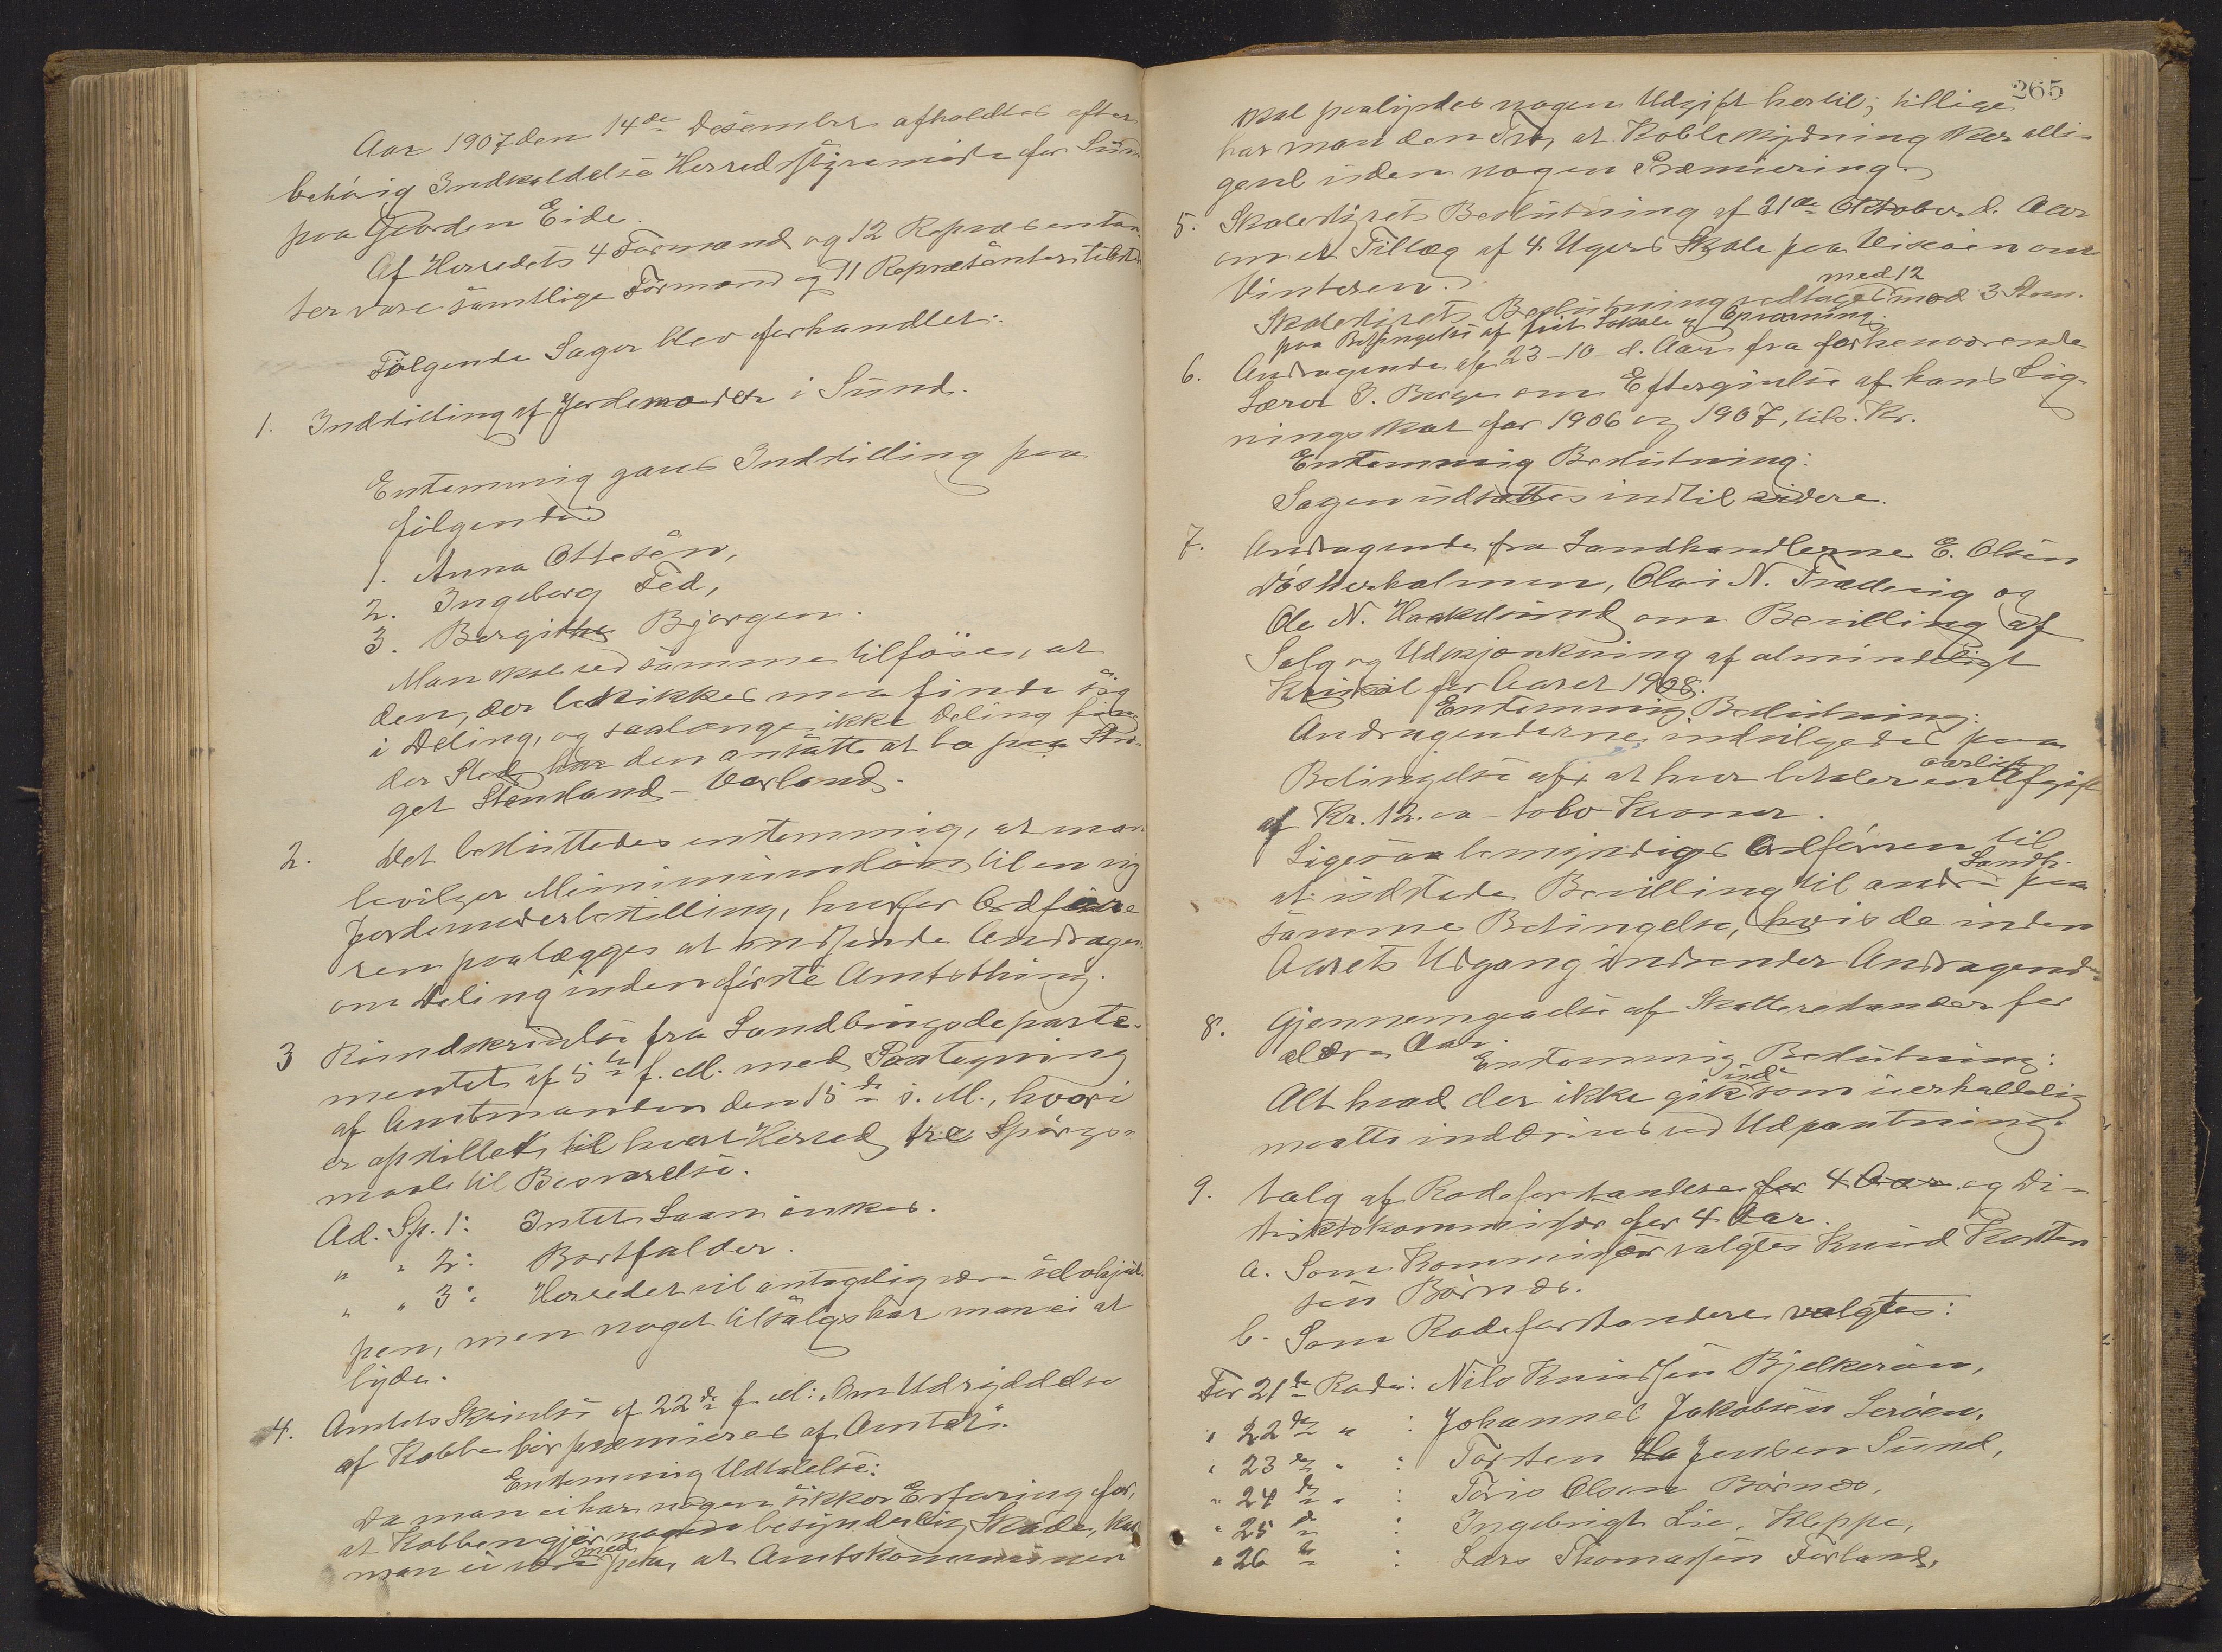 Aar 1907 den 14de Desember afholdtes efter
behörig Indkaldelse Herredsstyremöde for Sund
paa Gaarden Eide.
Af Herredets 4 Formænd og 12 Repræsentan-
ter vare samtlige Formænd og 11 Repræsentanter tilstede
Fölgende Sager blev forhandlet:
1. Indstilling af Jordemoder i Sund.
Enstemmig gaves Indstilling paa
fölgende:
1. Anna Ottesen,
2. Ingeborg Fed,
3. Bergithe Bjorgen.
Man skal ved samme tilföie, at
den, der beskikkes maa finde sig
i Deling, og saalænge ikke Deling fin-
der Sted har den ansatte at bo paa Strö-
get Stenland - Vorland.
2. Det besluttedes enstemmig, at man
bevilger Minimumslön til en ny
Jordemoderbestilling, hvorfor Ordföre
ren paalægges at indsende Andragen.
om Deling inden förste Amtsthing.
3 Rundskrivelse fra Landbrugsdeparte-
mentet af 5te f. M. med Paategning
af Amtmanden den 15de s. M., hvori
er opstillet til hvert Herred tre Spörgs-
maale til Besvarelse.
Ad. Sp. 1: Intet Laan önskes.
" " 2: Bortfalder.
" " 3: Herredet vil antagelig være selvhjul-
pen, men noget tilsalgs har man ei at
byde.
4. Amtets Skrivelse af 22de f. M: Om Udryddelse
af Kobbe bör præmieres af Amtet.
Enstemmig Udtalelse:
Da man ei har nogen sikker Erfaring for,
at Kobben gjör nogen besynderlig Skade, kan
med
man ei være paa, at Amtskommunen
265
skal paalydes nogen Udgift hertil; tillige
har man den Tro, at Kobbeskydning sker alli-
gevel uden nogen Præmiering.
5. Skolestyrets Beslutning af 21de Oktober d. Aar
om et Tillæg af 4 Ugers Skole paa Viksöen om
Vinteren.
med 12
Skolestyrets Beslutning vedtages mod 3 Stem.
paa Betingelse af frit Lokale og Opvarmning.
6. Andragende af 23-10- d. Aar fra forhenværende
Lærer I. Berge om Eftergivelse af hans Lig-
ningsskat for 1906 og 1907, tils. Kr.
Enstemmig Beslutning:
Sagen udsættes indtil videre.
7. Andragende fra Landhandlerne E. Olsen
Lösherholmen, Olai N. Trædevig og
Ole N. Haakesund om Bevilling af
Salg og Udskjænkning af almindeligt
for Aaret 1908.
Enstemmig Beslutning:
Andragenderne indvilgedes paa
aarlig
Betingelse af, at hver betaler en Afgift
af Kr. 12.00 - tolv Kroner.
Ligesaa bemyndiges Ordföreren til
Landh.
at udstede Bevilling til andre paa
samme Betingelse, hvis de inden
Aarets Udgang indsender Andragende.
8. Gjennemgaaelse af Skatterestancer for
ældre Aar.
Enstemmig Beslutning:
ud
Alt hvad der ikke gik som uerholdelig
maatte inddrives ved Udpantning.
9. Valg af Rodeforstandere for 4 Aar og Di-
striktskommissær for 4 Aar.
a. Som Kommissær valgtes Knud Karsten
sen Börnes.
b. Som Rodeforstandere valgtes:
For 21de Rode: Nils Knudsen Bjelkeröen,
" 22de " : Johannes Jakobsen Leröen,
" 23de " : Torsten Ha Jensen Sund,
" 24de " : Toris Olsen Börnes,
" 25de : Ingebrigt Lie, Kleppe,
" 26de : Lars Thomassen Forland,